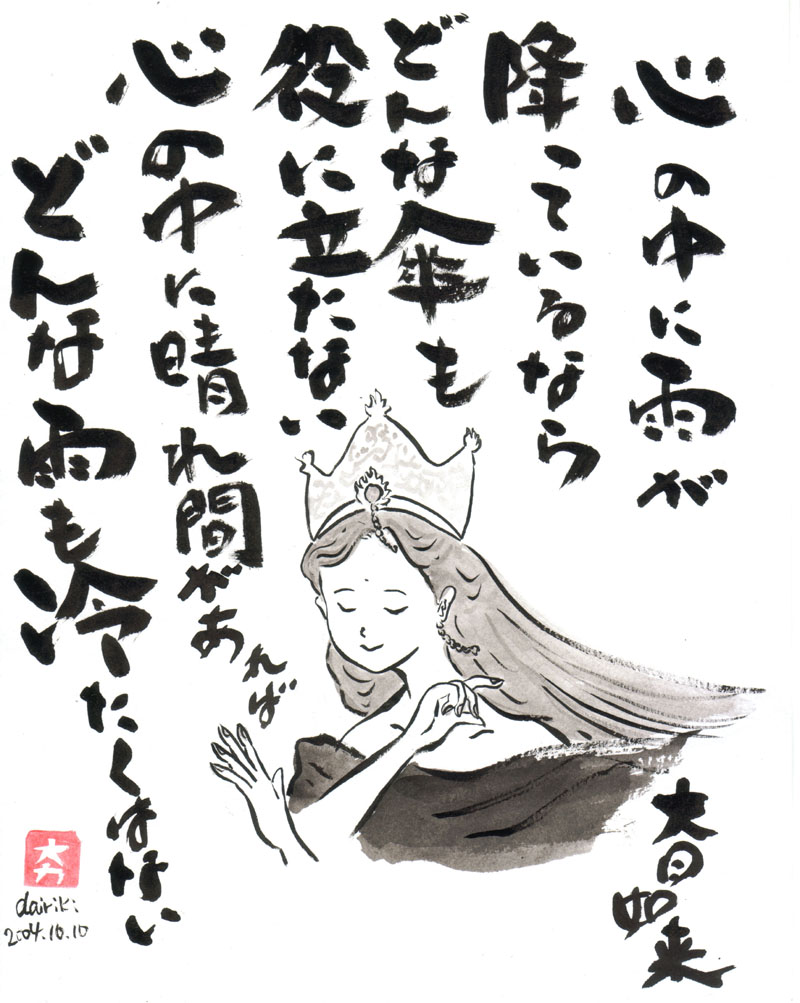 心の中に雨が
降っているなら
どんな傘も
役に立たない
心の中に晴れ間があれば
どんな雨も冷たくはない
大日如来
大力
dairiki
2004.10.10